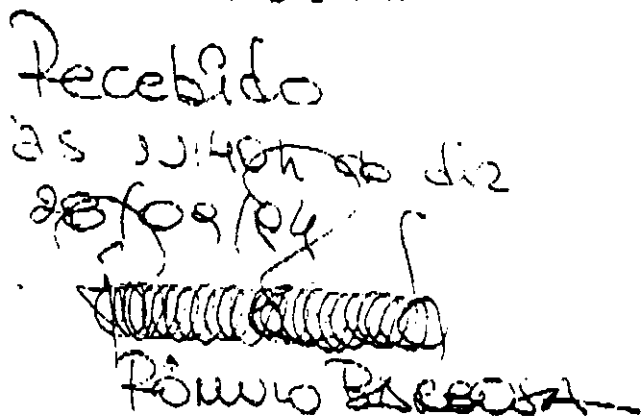 Recebido
às 11:40h do dia
28/09/04
RÔMULO BARBOSA